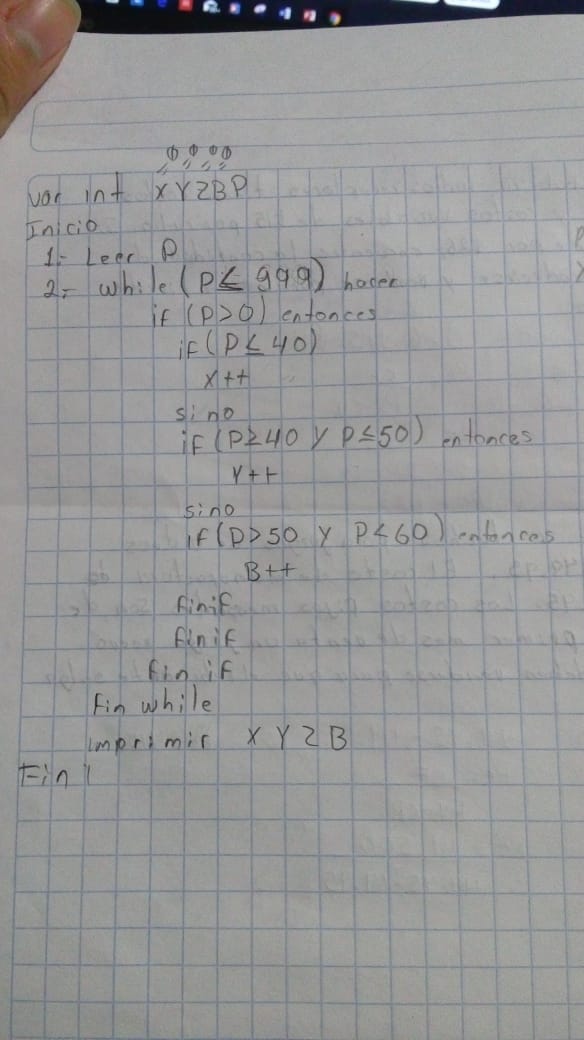 0 0 0 0
var int X Y Z B P
Inicio
1.- Leer P
2.- while (P ≤ 999) hacer
if (P>0) entonces
if (P ≤ 40)
X++
sino
if (P≥40 y P≤50) entonces
Y++
sino
if (P>50 y P<60) entonces
B++
finif
finif
fin if
Fin while
imprimir X Y Z B
Fin